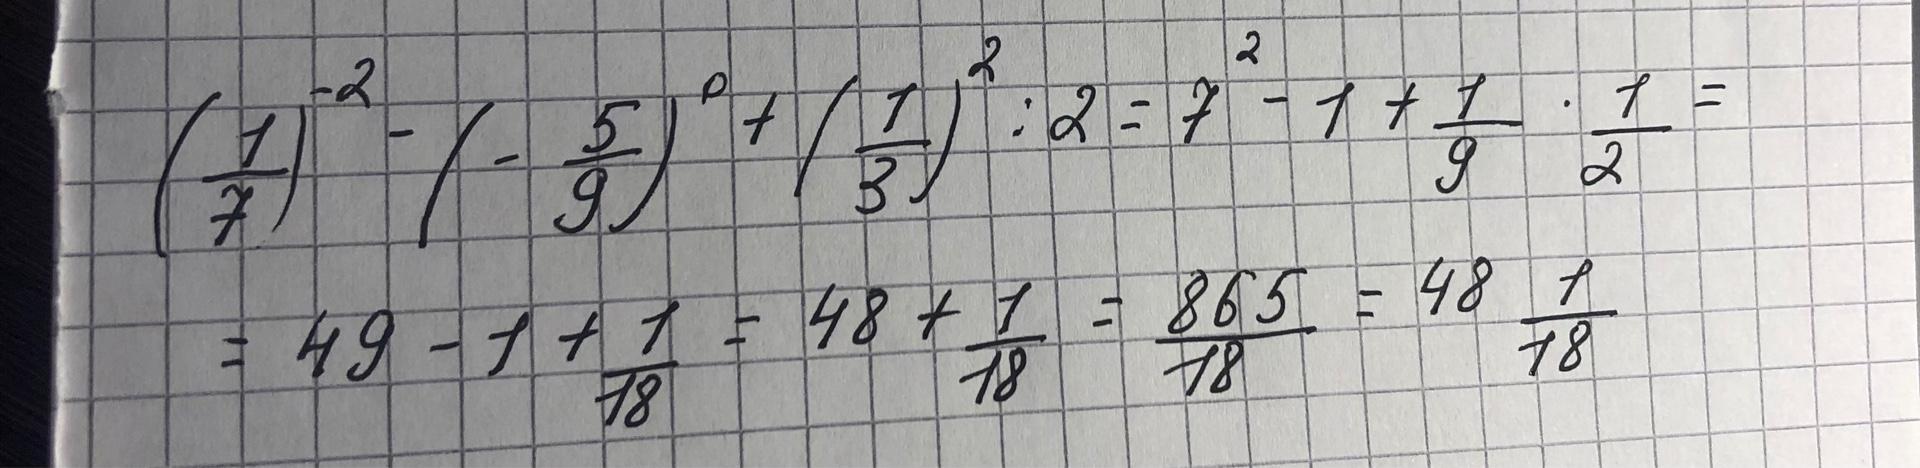 (1/7)^-2 - (- 5/9)^0 + (1/3)^2 : 2 = 7^2 - 1 + 1/9 · 1/2 =
= 49 - 1 + 1/18 = 48 + 1/18 = 865/18 = 48 1/18